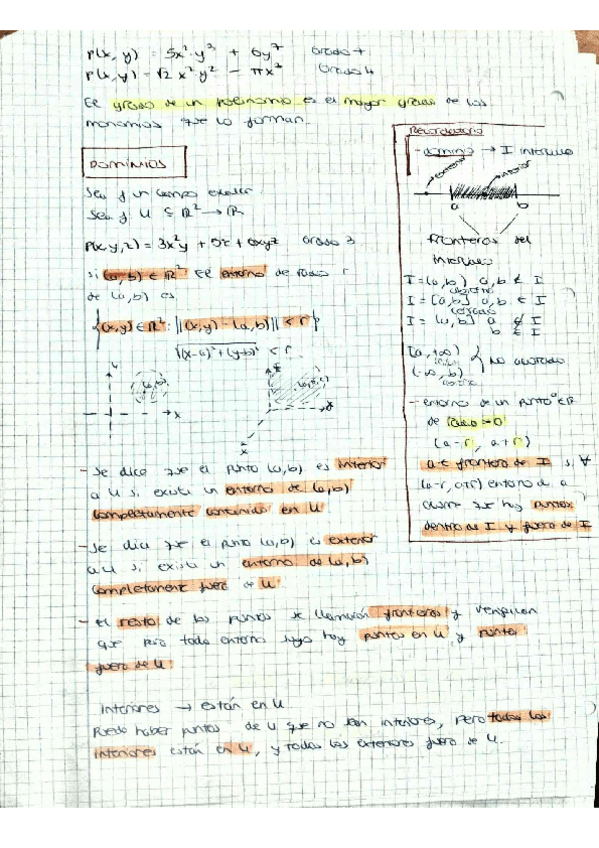 P(x, y) = 5x² y³ + 6y⁷ Grado 7
P(x, y) = √2 x² y² − πx³ Grado 4
El grado de un polinomio es el mayor grado de los
monomios que lo forman.
DOMINIOS
Sea f un campo escalar
Sea f: U ⊆ ℝ² → ℝ
P(x, y, z) = 3x²y + 5z + 6xyz Grado 3
si (a, b) ∈ ℝ² el entorno de radio r
de (a, b) es
{(x,y) ∈ ℝ² : ||(x,y) − (a,b)|| < r}
√(x−a)² + (y−b)² < r
(a,b)
x
- Se dice que el punto (a,b) es interior
a U si existe un entorno de (a,b)
completamente contenido en U
- Se dice que el punto (a,b) es exterior
a U si existe un entorno de (a,b)
completamente fuera de U
- El resto de los puntos se llamarán fronteras y verifican
que para todo entorno suyo hay puntos en U y puntos
fuera de U
Interiores → están en U
Puede haber puntos de U que no sean interiores, pero todos los
interiores están en U, y todos los exteriores fuera de U.
Recordatorio
- dominio → I intervalo
exterior interior
a b
Fronteras del
intervalo
I = (a, b) a, b ∉ I
abierto
I = [a, b] a, b ∈ I
cerrado
I = (a, b] a ∉ I
b ∈ I
[a, +∞)
(-∞, b)
No acotado
- entorno de un punto a ∈ ℝ
de radio r > 0
(a−r, a+r)
a es frontera de I si ∀
(a−r, a+r) entorno de a
que hay puntos
dentro de I y fuera de I